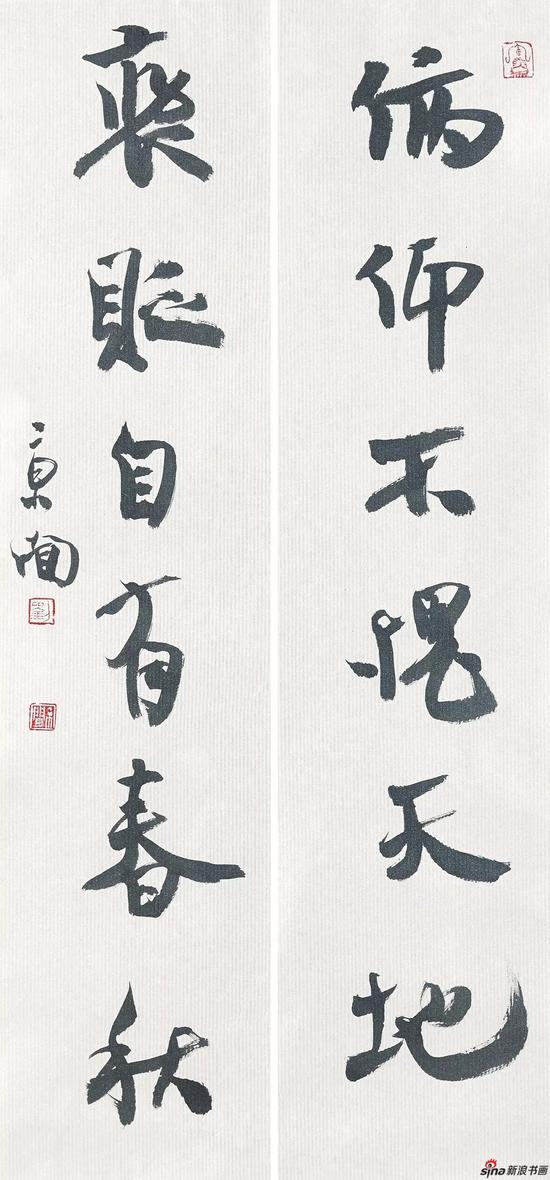 俯仰不愧天地
褒貶自有春秋
京聞
sina新浪书画